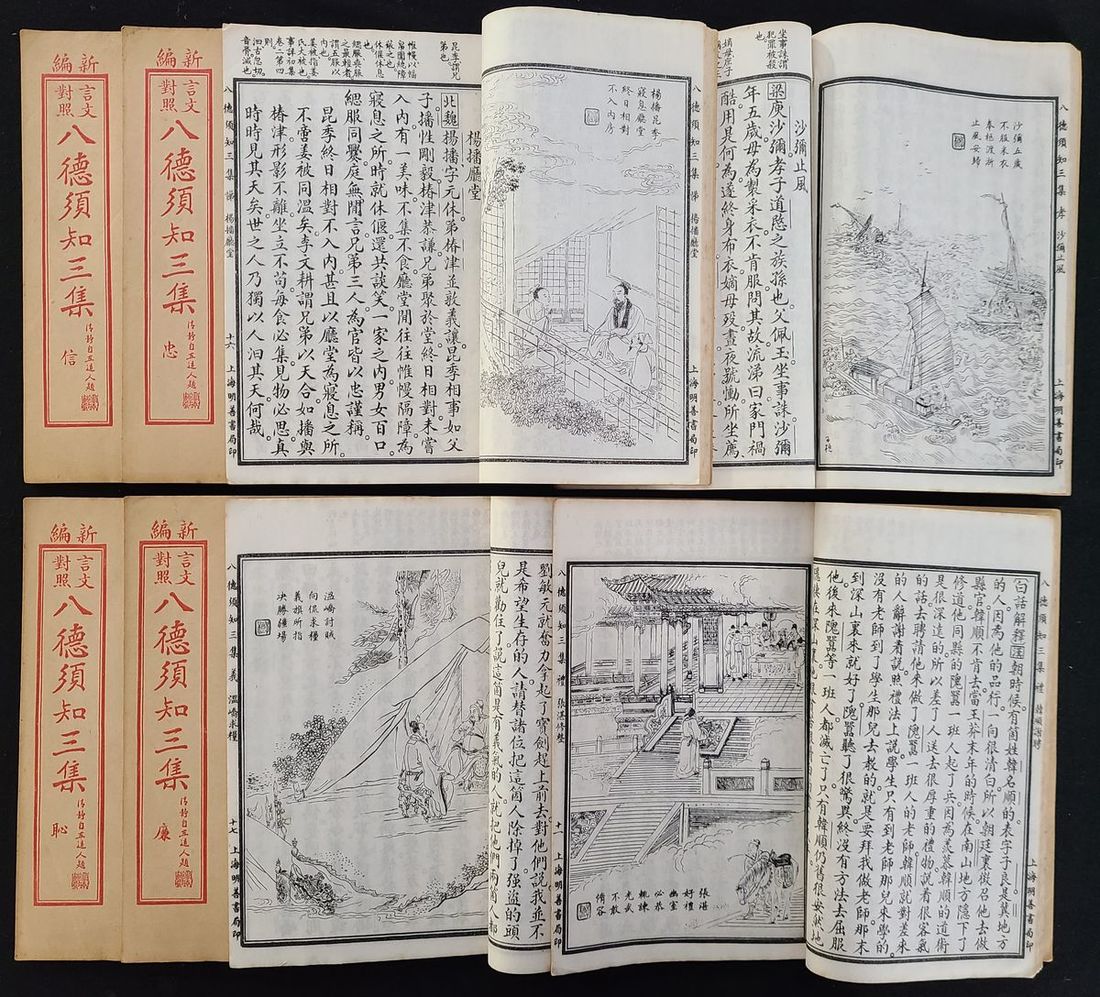 新編
言文對照
八德須知三集
信
新編
言文對照
八德須知三集
忠
昆季謂兄
弟也
帷幔以幅
帛圍繞障
蔽之也
休偃休息
也
緦服喪服
之最輕者
謂五服以
內也
姜被指姜
氏大被也
事詳初集
卷二第四
則
汩古忽切
音骨滅也
楊播廳堂
北魏楊播字元休弟椿津並敦義讓昆季相事如父
子。播性剛毅。椿津恭謙。兄弟聚於堂。終日相對。未嘗
入內。有一美味。不集不食。廳堂間。往往帷幔隔障。為
寢息之所。時就休偃。還共談笑。一家之內。男女百口。
緦服同爨。庭無間言。兄弟三人。為官皆以忠謹稱。
昆季終日相對。不入內。甚且以廳堂為寢息之所。
不啻姜被同溫矣。李文耕謂兄弟以天合。如播與
椿津。形影不離。坐立不苟。每食必集。見物必思。真
時時見其天矣。世之人。乃獨以人汩其天何哉。
八德須知三集 悌 楊播廳堂 十六 上海明善書局印
楊播昆季
寢息廳堂
終日相對
不入內房
八德須知三集 悌 楊播廳堂 上海明善書局印
坐事誅謂
犯罪被殺
也
嫡母庶子
沙彌止風
梁庾沙彌。孝子道愍之族孫也。父佩玉坐事誅。沙彌
年五歲。母為製采衣。不肯服。問其故。流涕曰。家門禍
酷。用是何為。遂終身布衣。嫡母歿。晝夜號慟。所坐薦
沙彌五歲
不服采衣
奉柩渡浙
止風安歸
八德須知三集 孝 沙彌止風 上海明善書局印
新編
言文對照
八德須知三集
恥
新編
言文對照
八德須知三集
廉
八德須知三集 義 溫嶠求糧 十七 上海明善書局印
溫嶠討賊
向侃求糧
義旗所指
決勝疆場
劉敏元就奮力拿起了寶劍趕上前去。對他們說。我並不
是希望生存的人。請替諸位把這箇人除掉了。強盜的頭
兒就勸住了。說這箇是有義氣的人。就把他們兩箇人都
八德須知三集 禮 張湛修整 十一 上海明善書局印
張湛
好禮
幽室
必恭
桃諫
光武
不敢
惰容
白話解釋 漢朝時候。有箇姓韓名順的。表字子良。是冀地方
的人。因為他的品行。一向很清白。所以朝廷裏徵召他去做
縣官。韓順不肯去。當王莽末年的時候。在南山地方隱下了
修道。他同縣的隗囂一班人起了兵。因為羨慕韓順的道術。
是很深遠的。所以差了人送去很厚重的禮物。說着很客氣
的話去聘請他來做了隗囂一班人的老師。韓順就對差來
的人解謝着說。照禮法上說。學生只有到老師那兒來學的。
沒有老師到了學生那兒去教的。就是要拜我做老師。那末
到深山裏來就好了。隗囂聽了很驚異。終沒有方法去屈服
他。後來隗囂等一班人都滅亡了。只有韓順仍舊很安然地
八德須知三集 禮 上海明善書局印